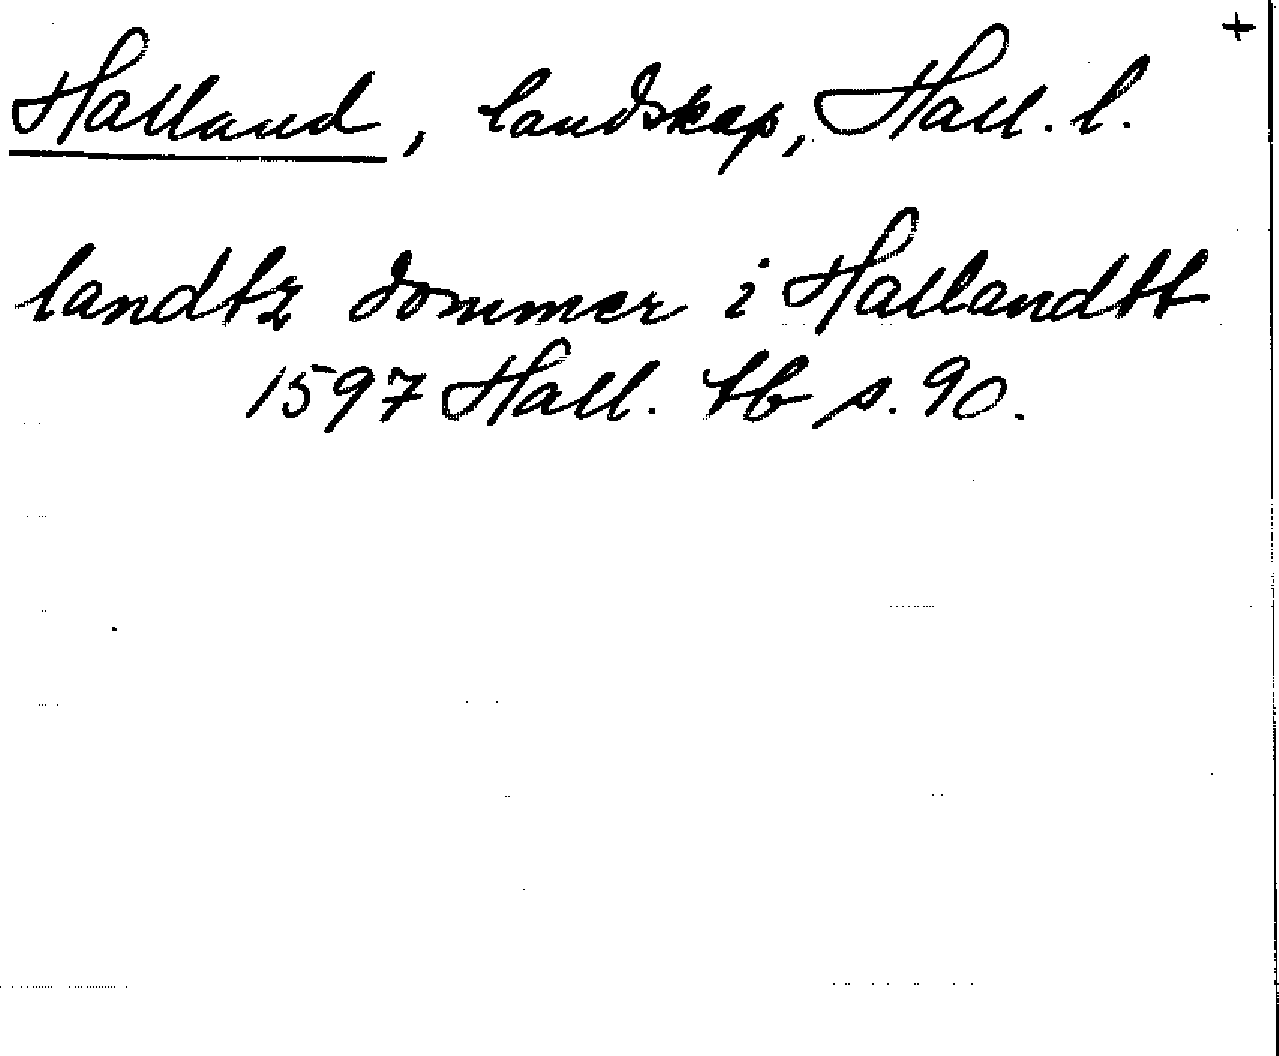 +
Halland, landskap, Hall. l.
landtz dommer i Hallandtt
1597 Hall. tb s. 90.